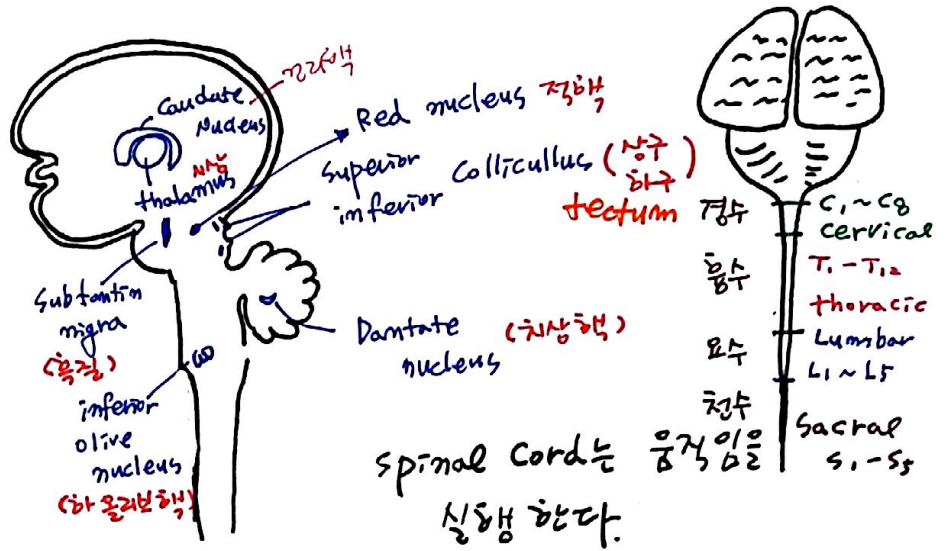 꼬리핵
Caudate
Nucleus
시상
thalamus
Red nucleus 적핵
Superior
inferior
Collicullus (상구
하구)
tectum
Substantin
nigra
(흑질)
Dantate
nucleus
(치상핵)
inferior
olive
nucleus
(하올리브핵)
경수
C1~C8
cervical
흉수
T1-T12
thoracic
요수
Lumsbar
L1~L5
천수
Sacral
S1-S5
Spinal Cord는 움직임을
실행 한다.